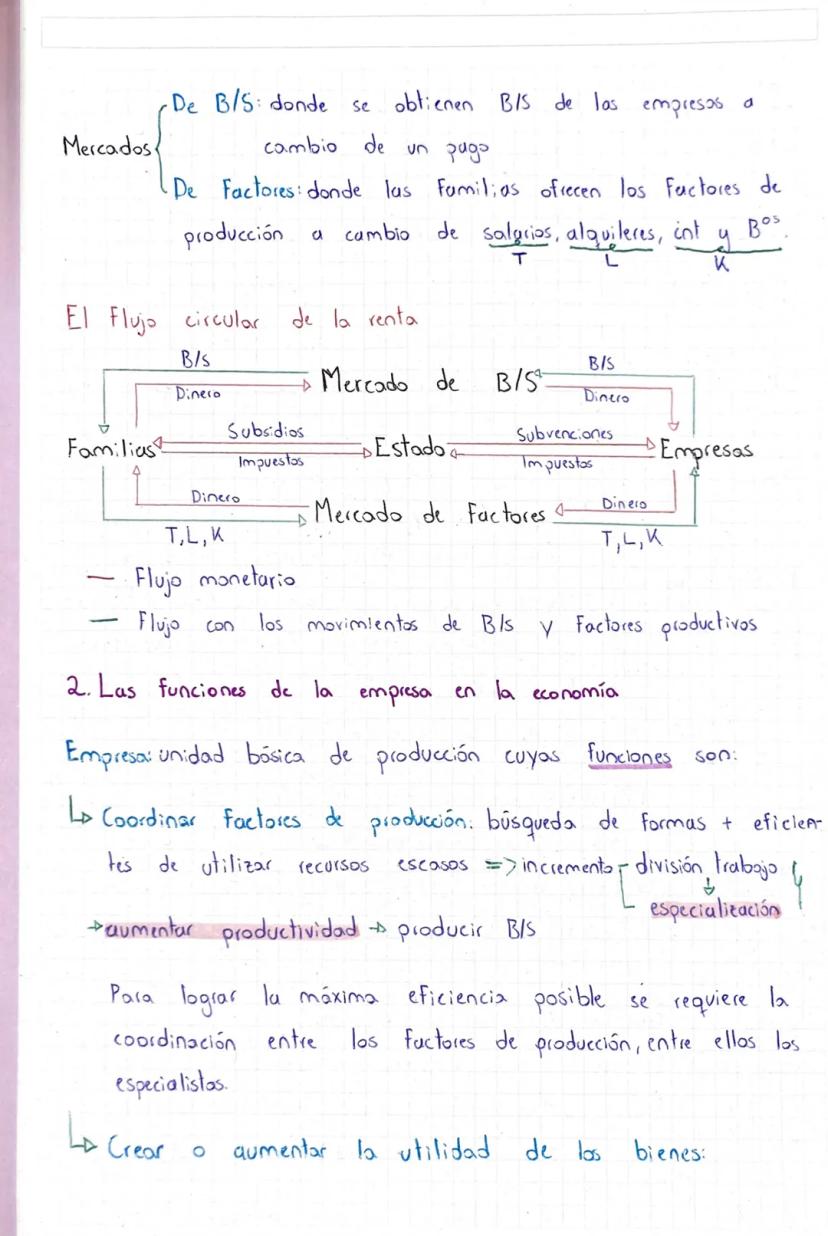 De B/S: donde se obtienen B/S de las empresas a
Mercados
cambio de un pago
De Factores: donde las Familias ofrecen los Factores de
producción a cambio de salarios, alquileres, int y Bºs.
T L K
El Flujo circular de la renta
B/S B/S
Mercado de B/S
Dinero Dinero
Subsidios Subvenciones
Familias Estado Empresas
Impuestos Impuestos
Dinero Dinero
Mercado de Factores
T, L, K T, L, K
— Flujo monetario
— Flujo con los movimientos de B/s y Factores productivos
2. Las funciones de la empresa en la economía
Empresa: unidad básica de producción cuyas funciones son:
↳ Coordinar Factores de producción: búsqueda de formas + eficien-
tes de utilizar recursos escasos => incremento división trabajo
↓
especialización
→ aumentar productividad → producir B/S
Para lograr la máxima eficiencia posible se requiere la
coordinación entre los Factores de producción, entre ellos los
especialistas.
↳ Crear o aumentar la utilidad de los bienes: